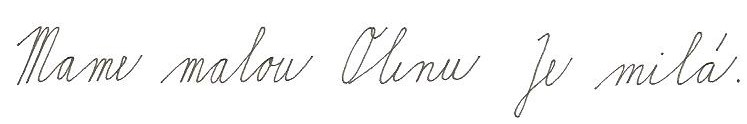 Mame malou Olinu Je milá.